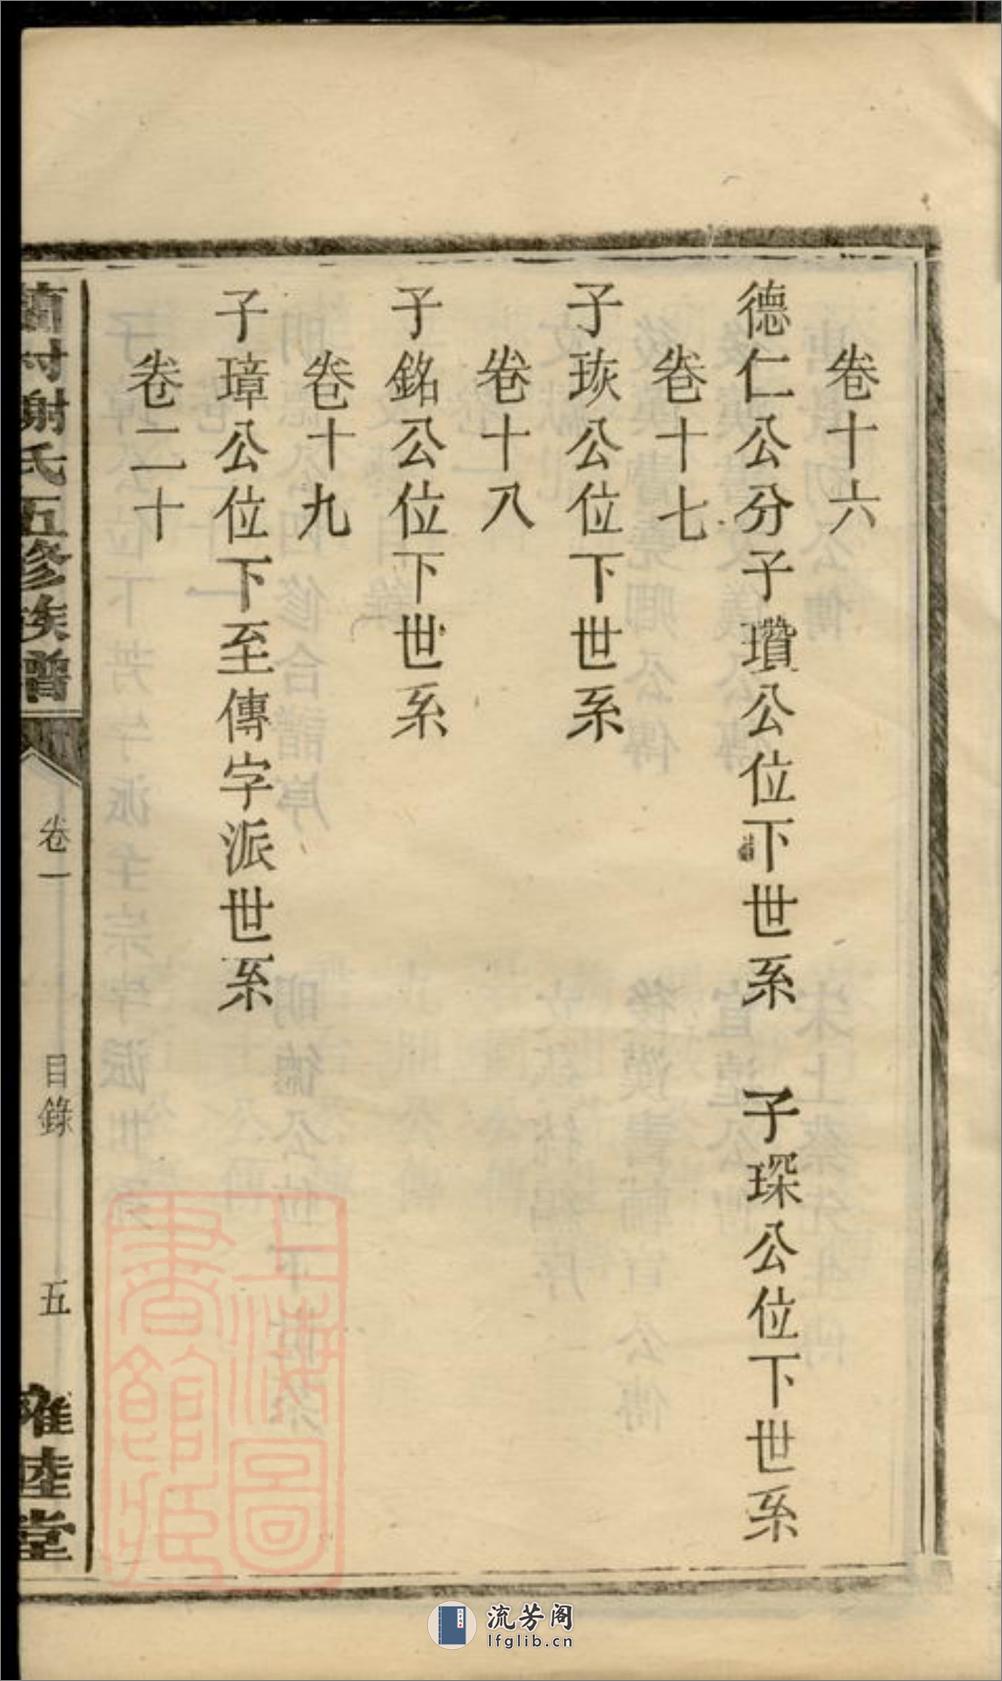 卷十六
德仁公分子瓚公位下世系　子琛公位下世系
卷十七
子珓公位下世系
卷十八
子銘公位下世系
卷十九
子璋公位下至傳字派世系
卷二十
蘭村謝氏五修族譜
卷一
目錄
五
雍睦堂
上海圖書館藏
流芳阁
lfglib.cn